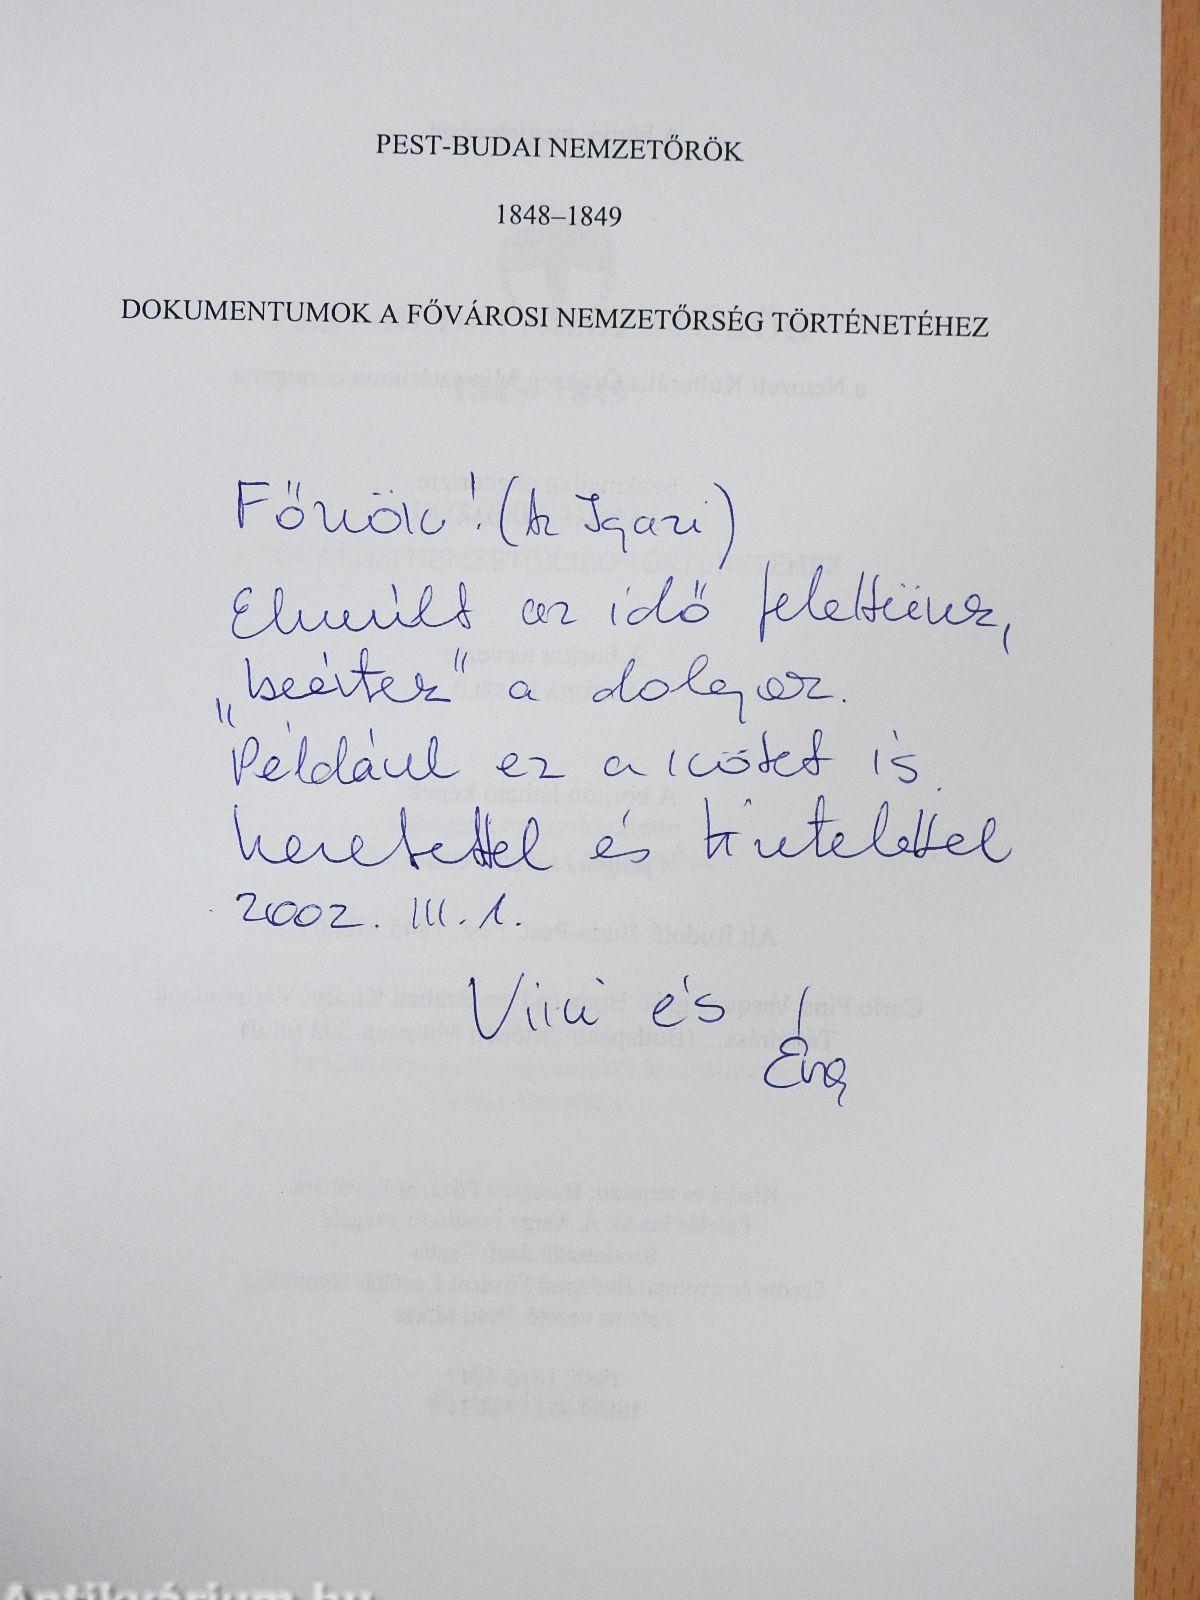 PEST-BUDAI NEMZETŐRÖK
1848–1849
DOKUMENTUMOK A FŐVÁROSI NEMZETŐRSÉG TÖRTÉNETÉHEZ
Főnök! (Az Igazi)
Elmúlt az idő felettünk,
„beértek" a dolgok.
Például ez a kötet is
Szeretettel és tisztelettel
2002. III. 1.
Viki és
Éva
Antikvárium.hu